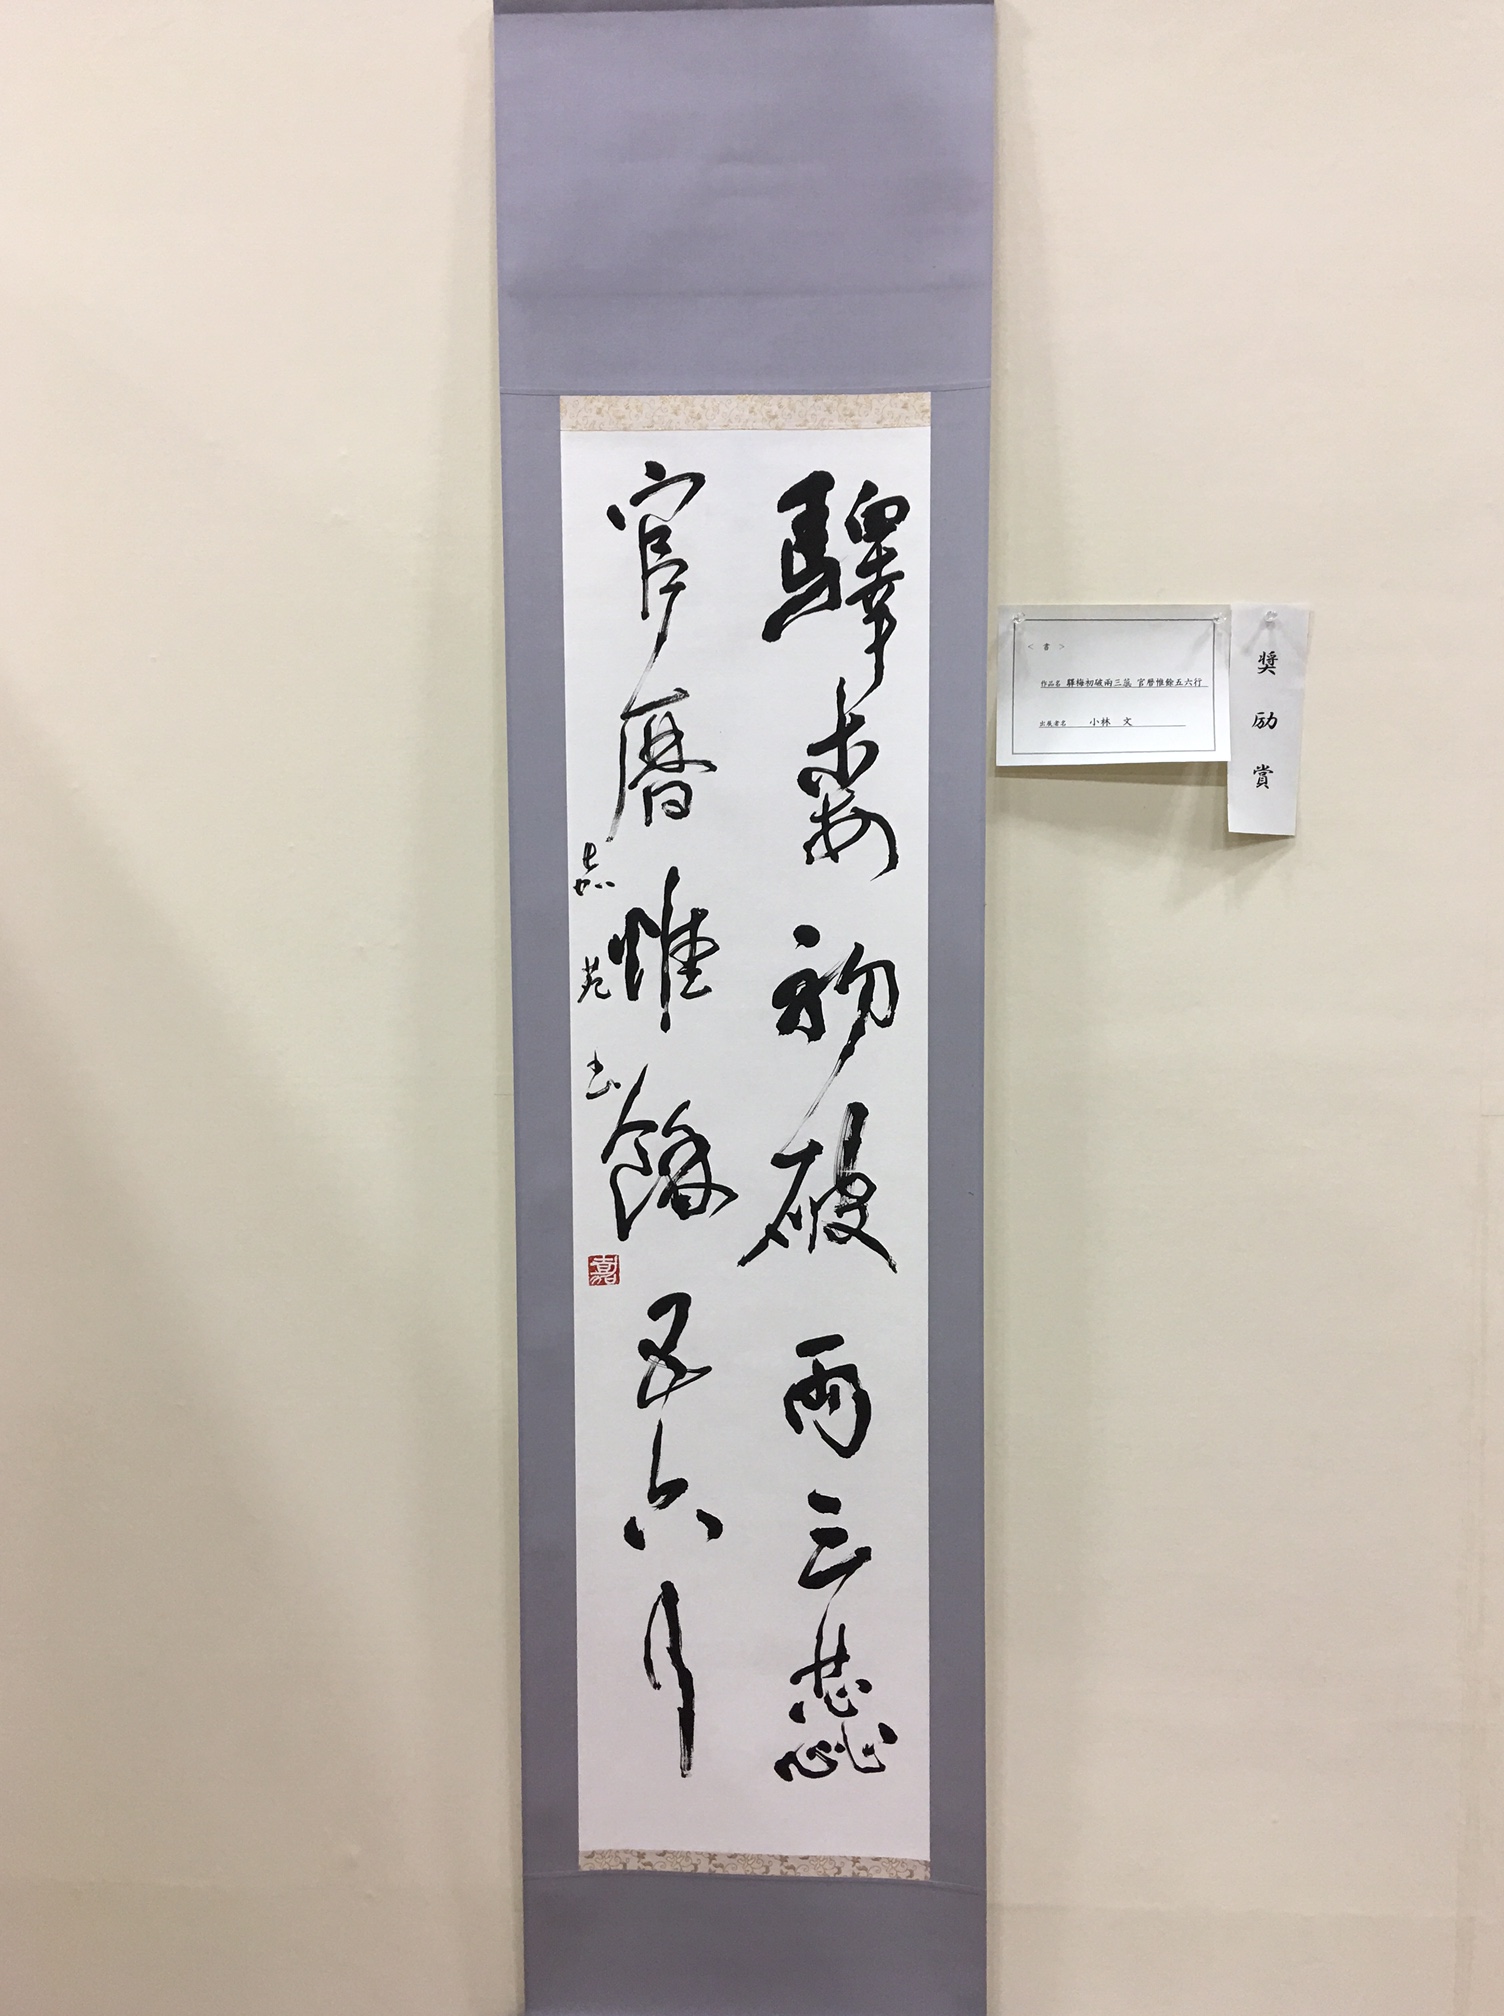 驛楳初破兩三蕊
官暦惟餘五六行
嘉苑書
嘉
＜ 書 ＞
作品名 驛梅初破兩三蕊 官暦惟餘五六行
出展者名 小林 文
奨励賞